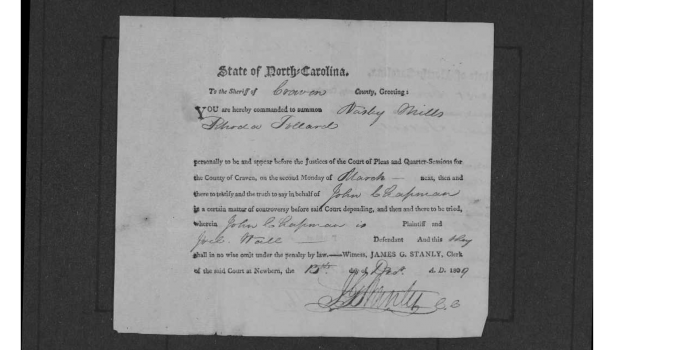 State of North-Carolina.
To the Sheriff of Craven County, Greeting:
YOU are hereby commanded to summon Vasby Mills
Rhoda Tollard
personally to be and appear before the Justices of the Court of Pleas and Quarter-Sessions for
the County of Craven, on the second Monday of March next, then and
there to testify and the truth to say in behalf of John Chapman
in a certain matter of controversy before said Court depending, and then and there to be tried,
wherein John Chapman is Plaintiff and
Joel Wall — Defendant And this they
shall in no wise omit under the penalty by law.—Witness, JAMES G. STANLY, Clerk
of the said Court at Newbern, the day of Dec. A. D. 1809
J G Stanly C C